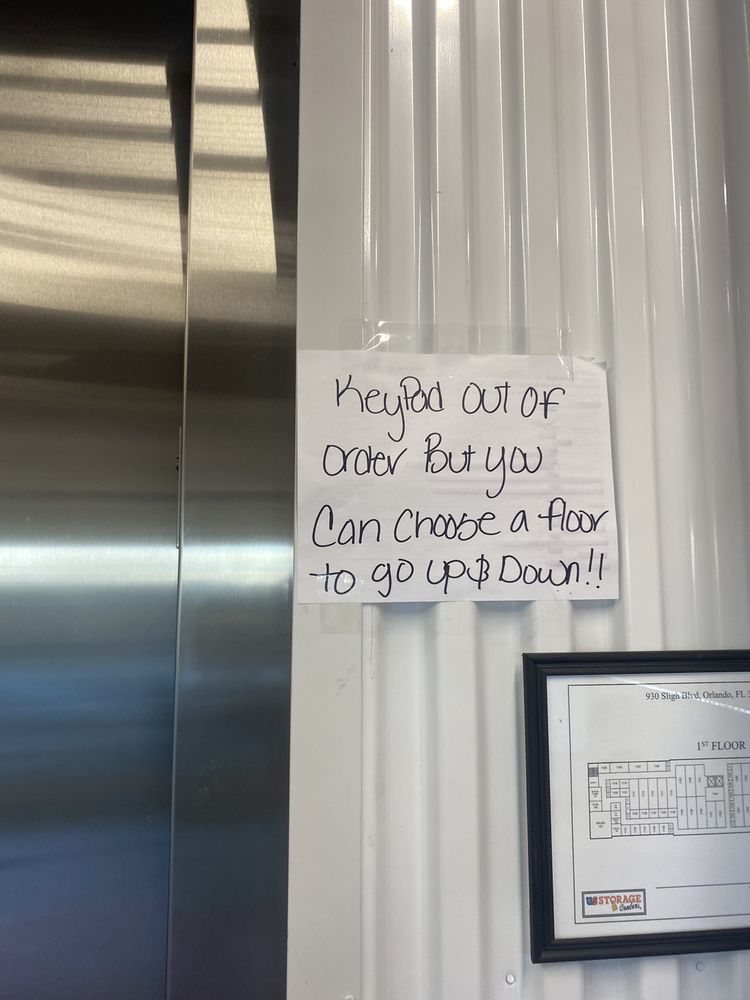 KeyPad Out Of
Order But you
Can Choose a floor
to go up & Down!!
930 Sligh Blvd, Orlando, FL
1ST FLOOR
US STORAGE
Centers